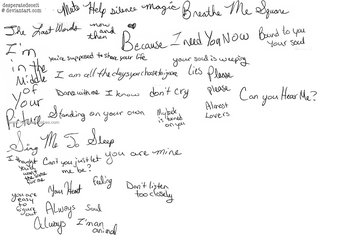 desperatedecei
deviantart.com
Mate Help silence magic Breathe Me Square
The Last Words now and then Because I need You Now Bound to you your soul
I'm in the Middle of Your Picture
you're supposed to save your life your soul is weeping
I am all the days you choose to ignore Lies Please
Dance with me I know don't cry please Can you Hear Me?
Standing on your own My back is turned on you Almost Lovers
Sing Me To Sleep
I thought you'd want the same for me Can't you just let me be? you are mine
you are easy to figure out Your Heart feeling Don't listen too closely
Always Soul
Always I'm an animal